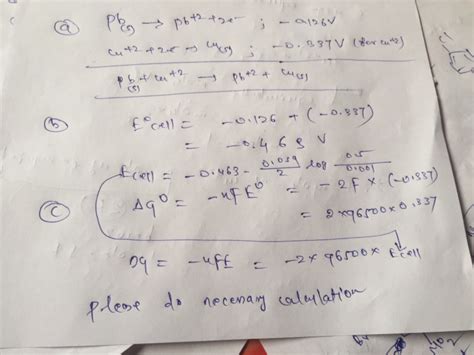 (a) Pb(s) → Pb+2 + 2e- ; -0.126V
Cu+2 + 2e- → Cu(s) ; -0.337V (for Cu+2)
Pb(s) + Cu+2 → Pb+2 + Cu(s)
(b) E°cell = -0.126 + (-0.337)
= -0.463 V
Ecell = -0.463 - 0.059/2 log 0.5/0.001
(c) ΔG° = -nFE° = -2F × (-0.337)
= 2×96500×0.337
ΔG = -nFE = -2×96500× Ecell
please do necessary calculation